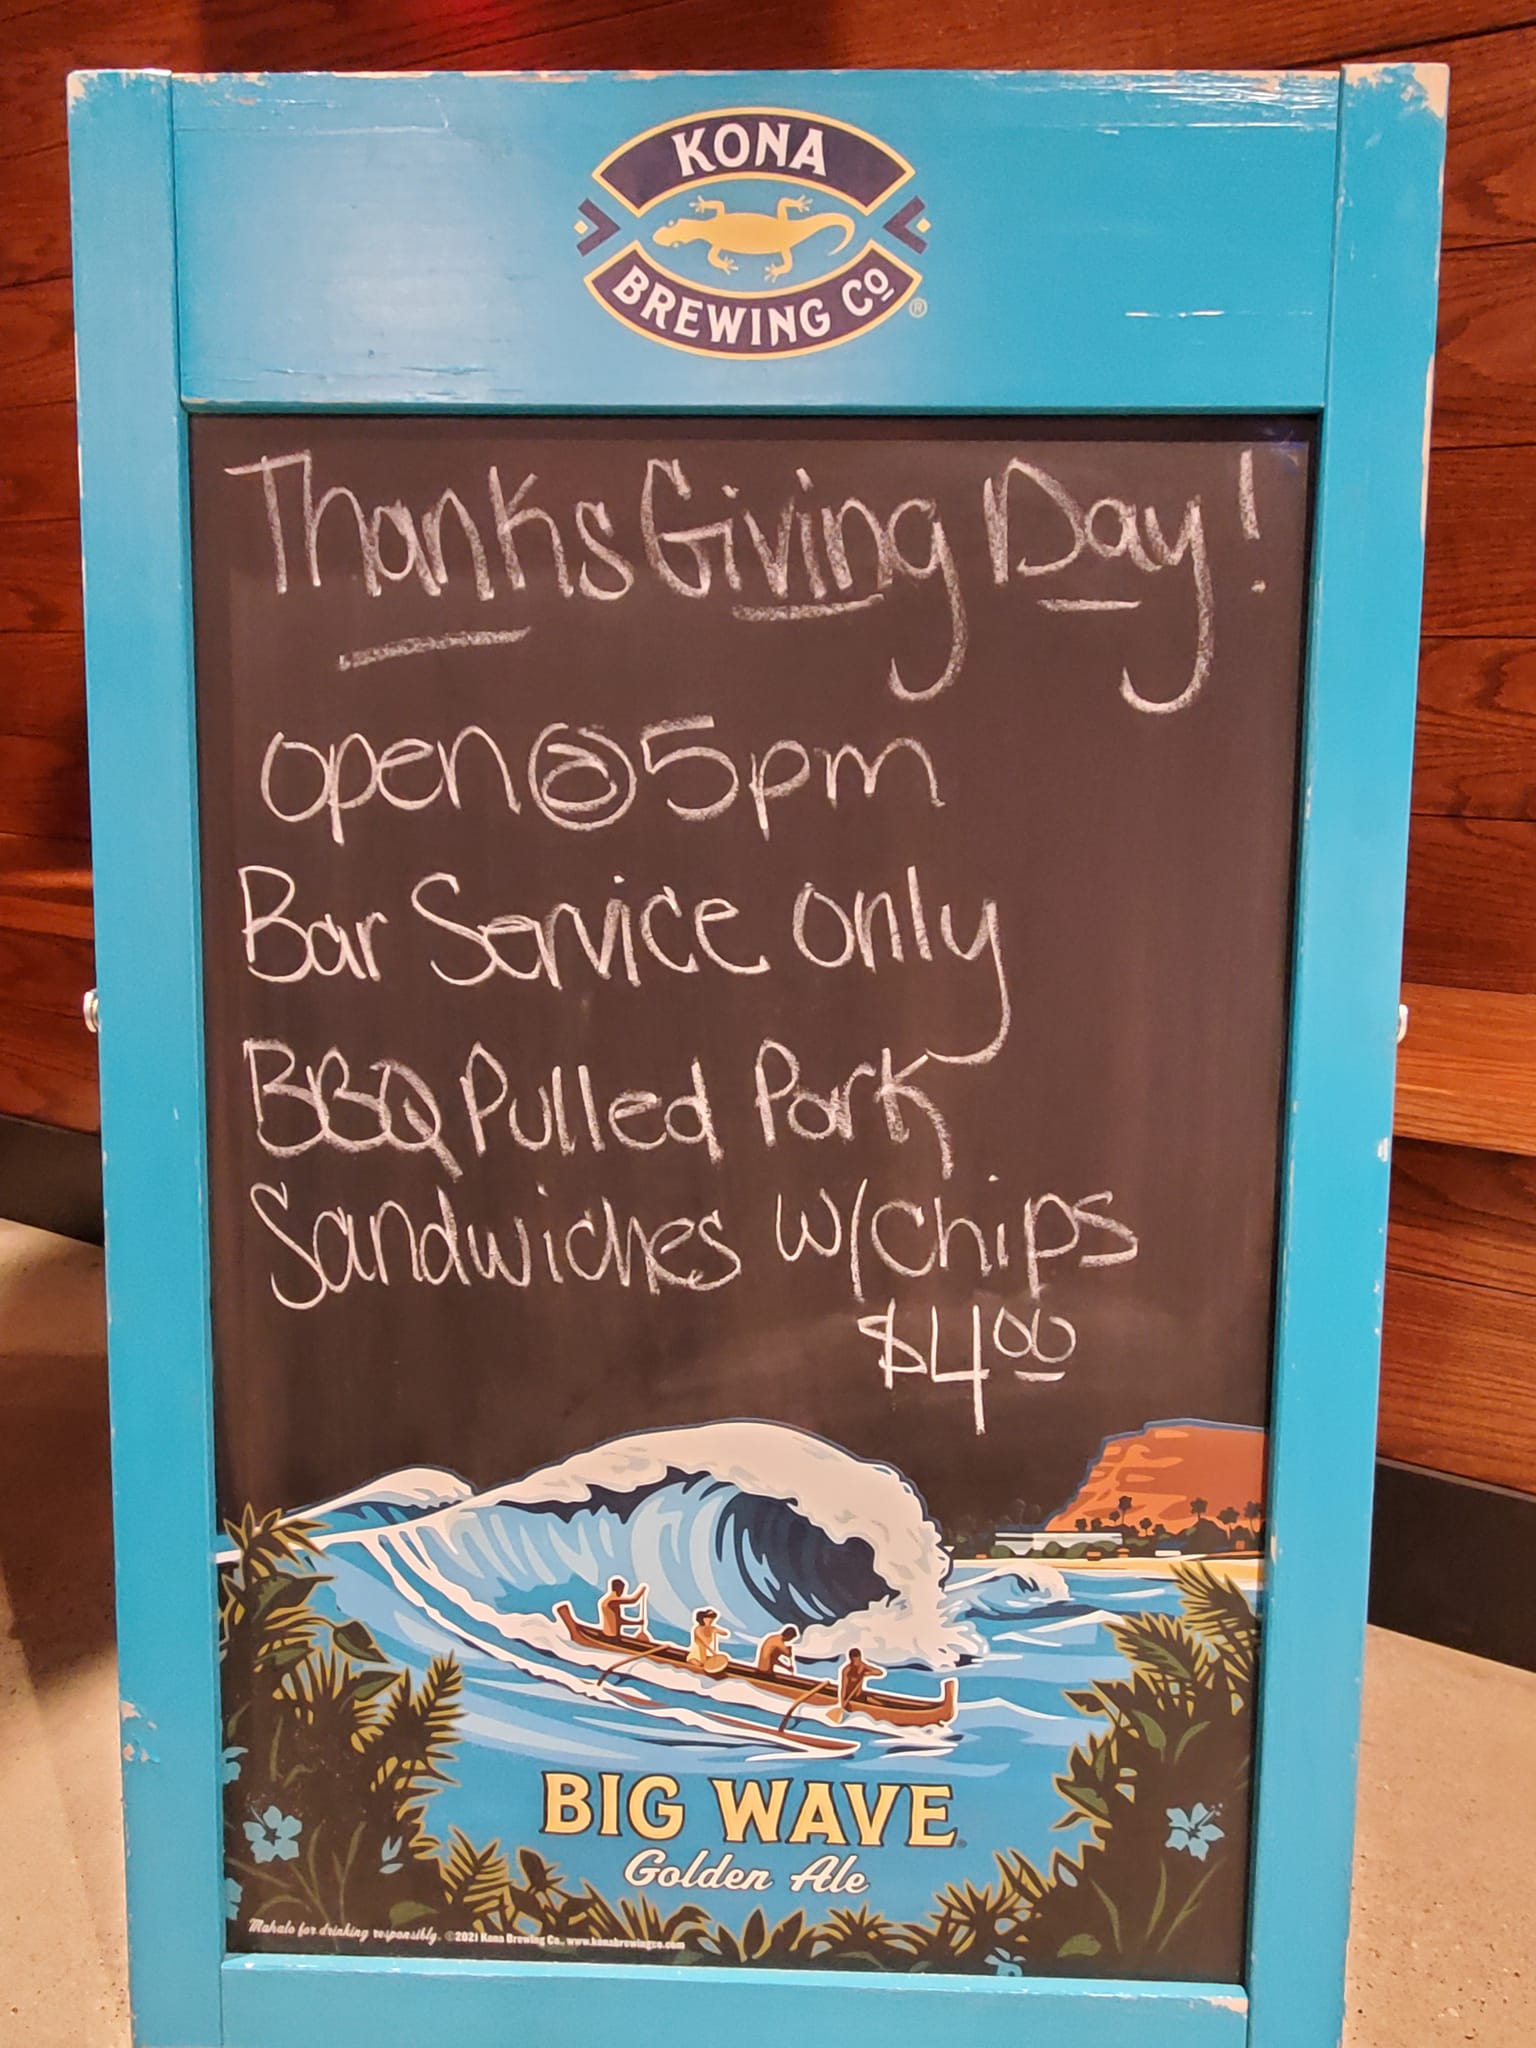 KONA
BREWING Co
®
ThanksGiving Day!
open @ 5pm
Bar Service only
BBQ Pulled Pork
Sandwiches w/chips
$4.00
BIG WAVE
Golden Ale
Mahalo for drinking responsibly. ©2021 Kona Brewing Co. www.konabrewingco.com